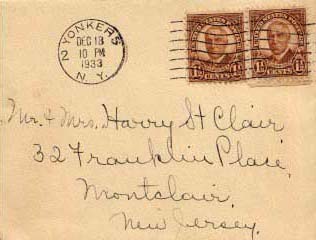 YONKERS
2
DEC 13
10 PM
1933
N. Y.
1½ CENTS 1½
1½ CENTS 1½
Mr. & Mrs. Harry St Clair
32 Franklin Place,
Montclair,
New Jersey.